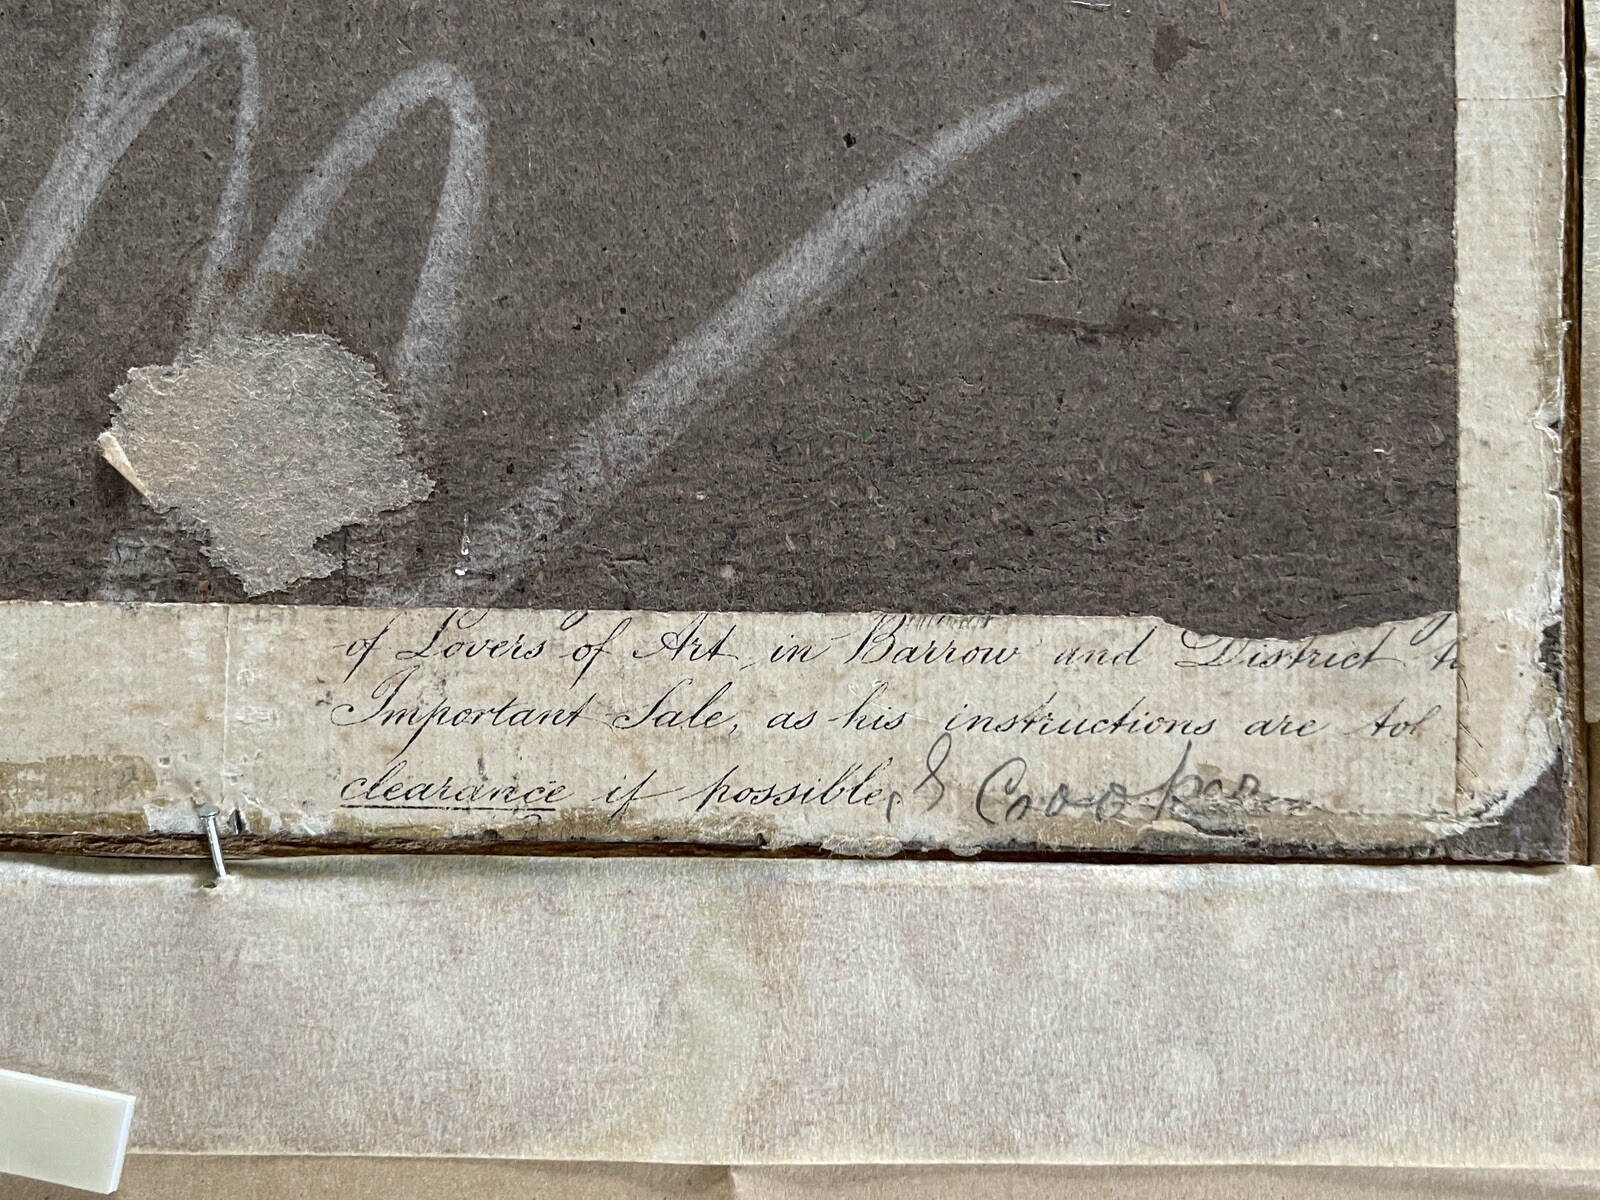 of Lovers of Art in Barrow and District
Important Sale, as his instructions are
clearance if possible. Cooper